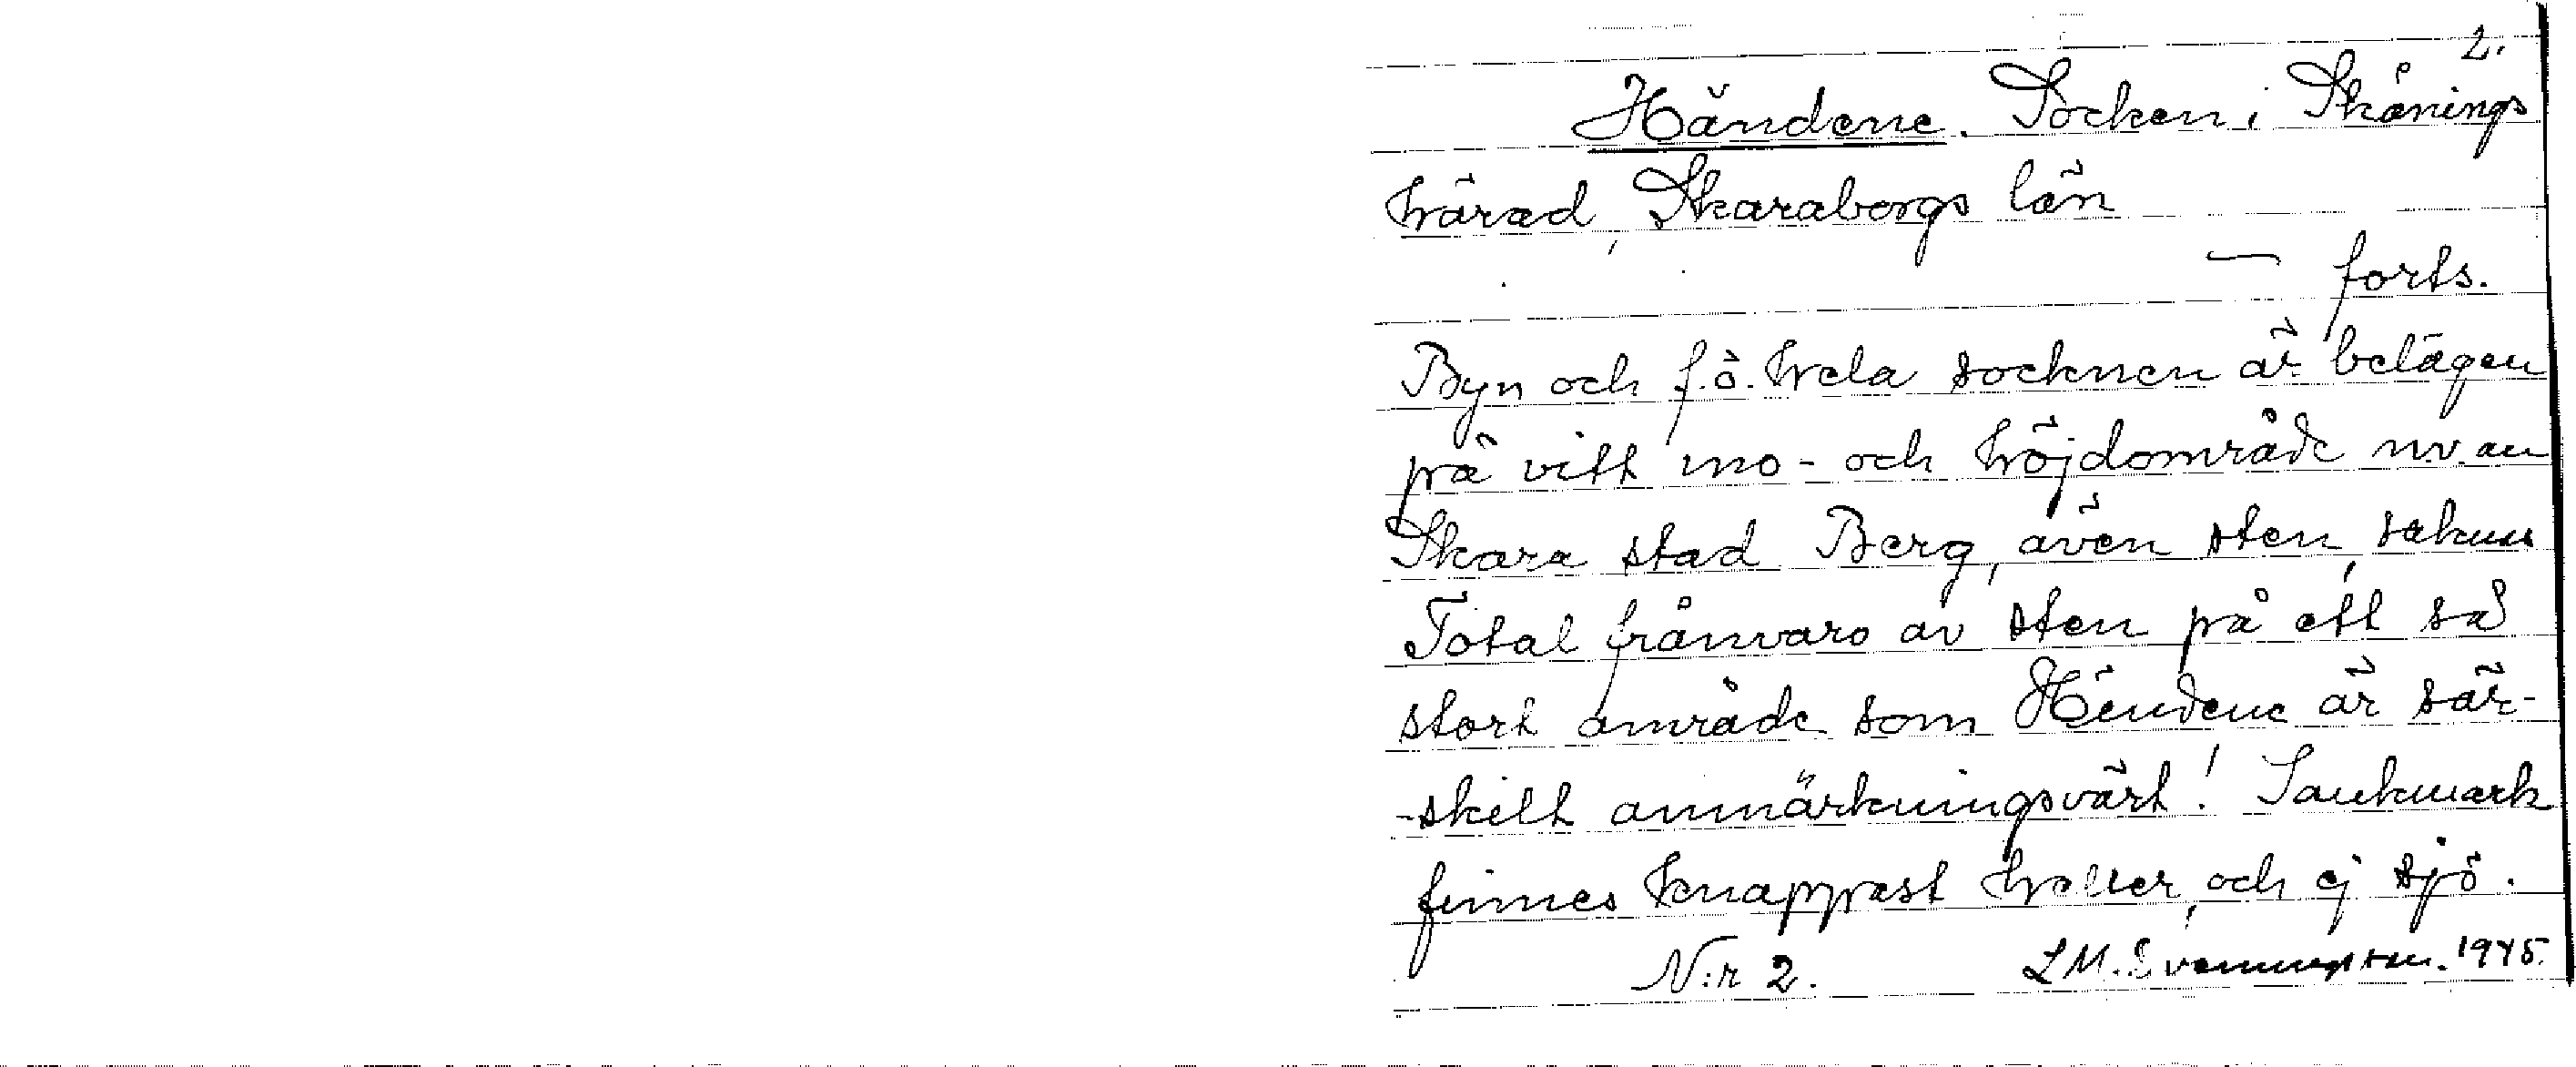 2.
Händene. Socken i Skånings
härad, Skaraborgs län
— forts.
Byn och f.ö. hela socknen är belägen
på vitt mo- och höjdområde n.v. om
Skara stad Berg, även sten, saknas
Total frånvaro av sten på ett så
stort område som Händene är sär-
-skilt anmärkningsvärt! Sankmark
finnes knappast heller, och ej sjö.
N:r 2. L M. Svenungsson. 1945.